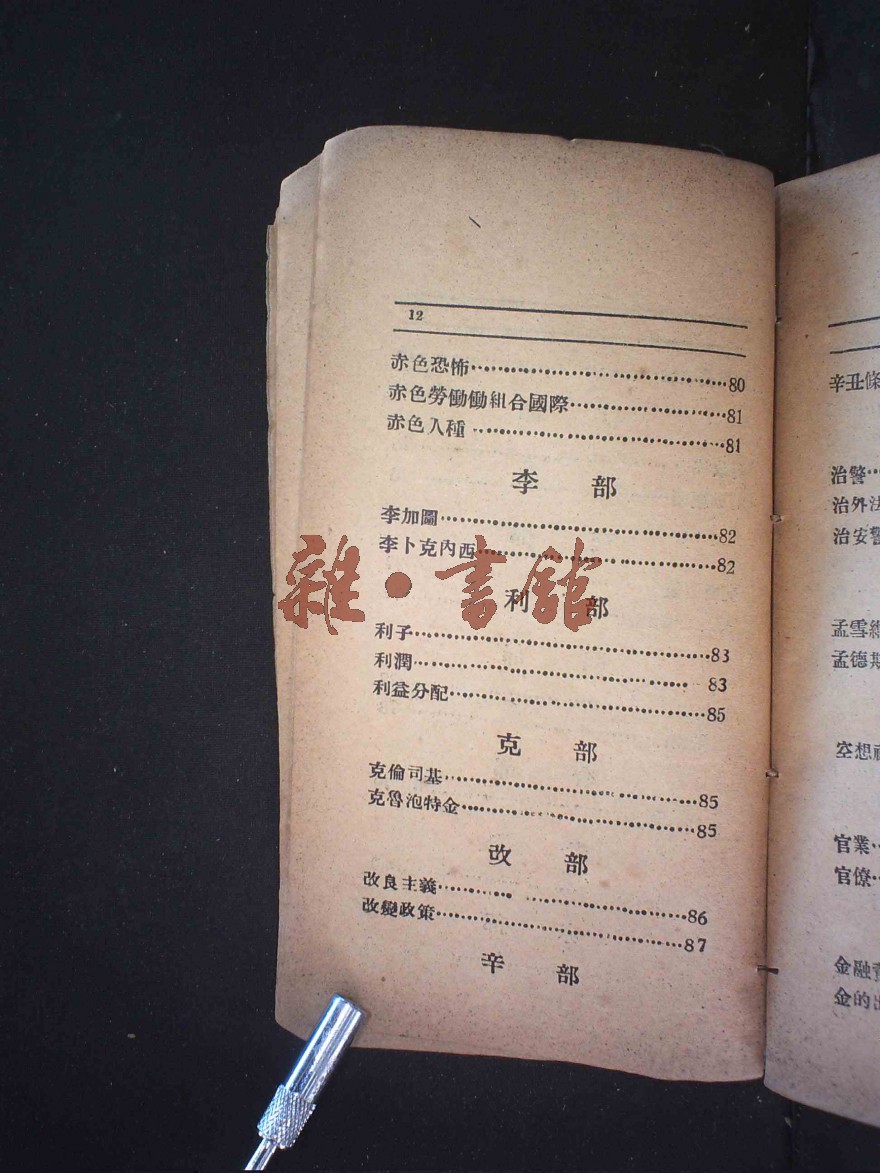 12
赤色恐怖……………………80
赤色勞働働組合國際……………………81
赤色入種……………………81
李 部
李加圖……………………82
李卜克內西……………………82
利 部
利子……………………83
利潤……………………83
利益分配……………………85
克 部
克倫司基……………………85
克魯泡特金……………………85
改 部
改良主義……………………86
改變政策……………………87
辛 部
雜·書館
辛丑條
治警
治外法
治安警
孟雪維
孟德斯
空想社
官業
官僚
金融資
金的出